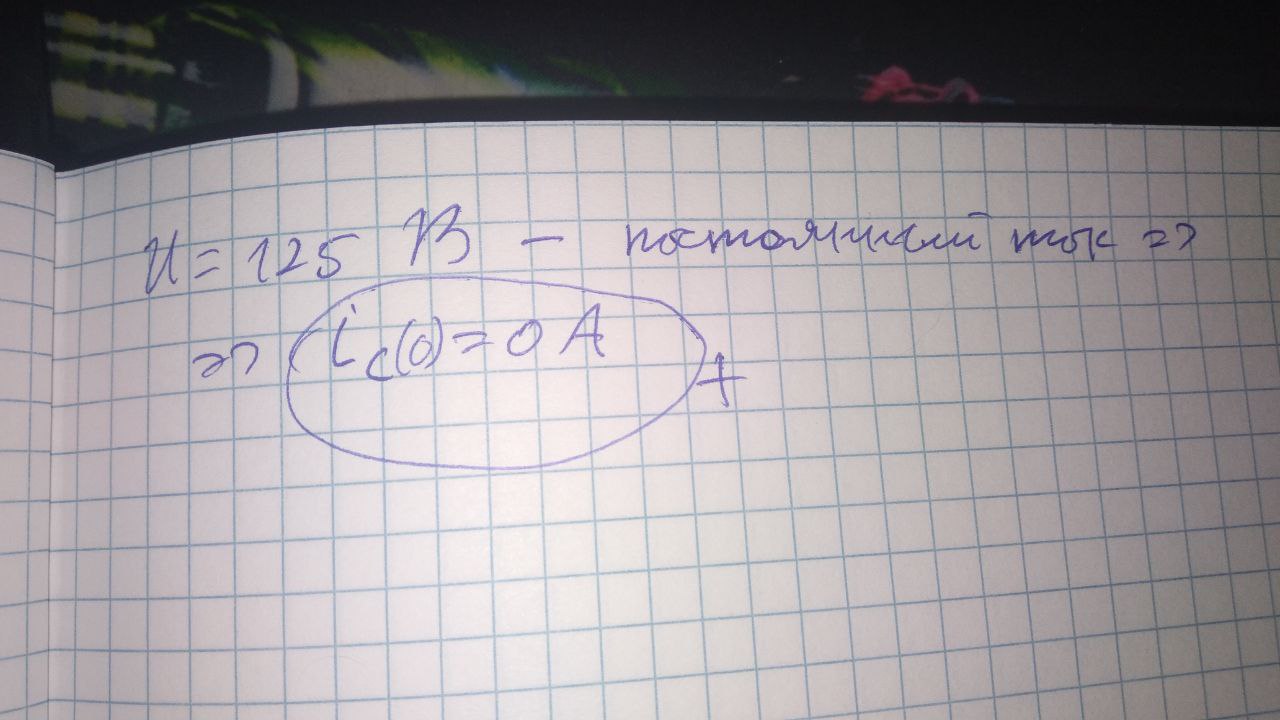 U = 125 В – постоянный ток =>
=> i_c(0) = 0 А +